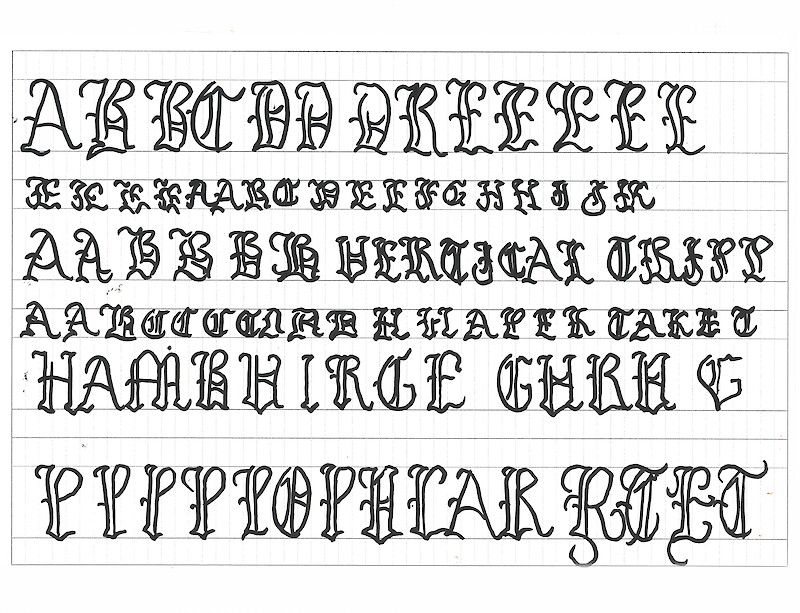 A B B C D D D R E E E E E
E E E E A A B C D E E F G H H I J K
A A B B B B VERTICAL TRIPP
A A B C C C C D A D H H A P E R TAKE T
HAMBURGE GHBH G
P P P P POPULAR RTET